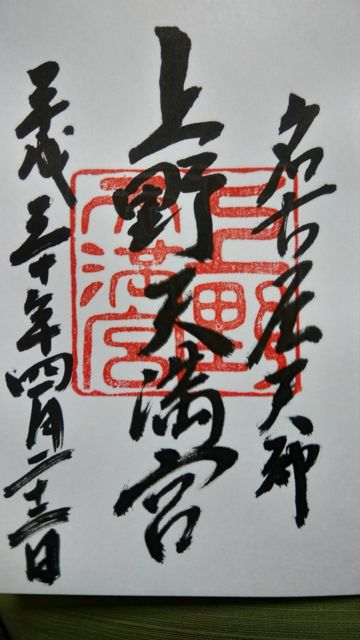 名古屋天神
上野天満宮
上野
天満宮
平成三十年四月二十二日